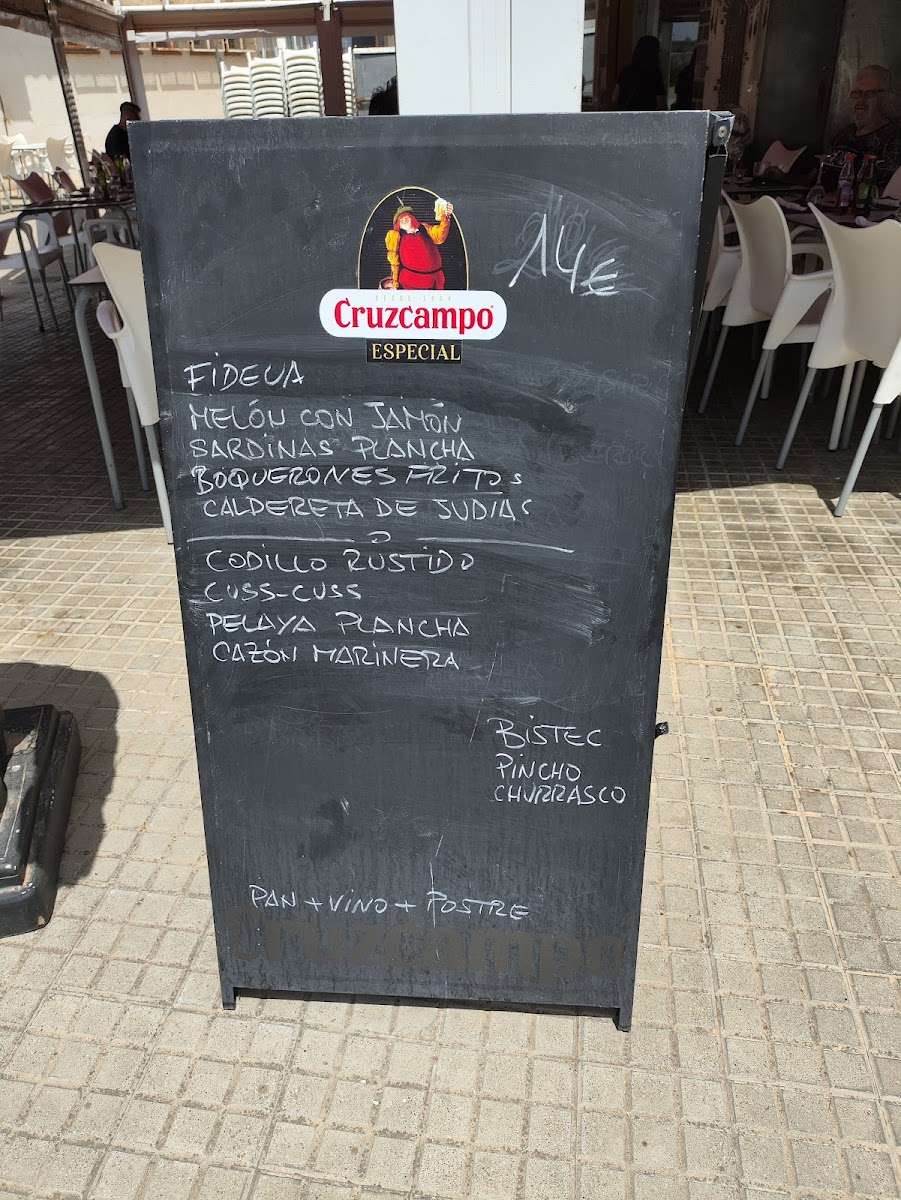 14€
DESDE 1904
Cruzcampo
ESPECIAL
FIDEUA
MELÓN CON JAMÓN
SARDINAS PLANCHA
BOQUERONES FRITOS
CALDERETA DE JUDIAS
CODILLO RUSTIDO
CUSS-CUSS
PELAYA PLANCHA
CAZÓN MARINERA
BISTEC
PINCHO
CHURRASCO
PAN + VINO + POSTRE
Cruzcampo